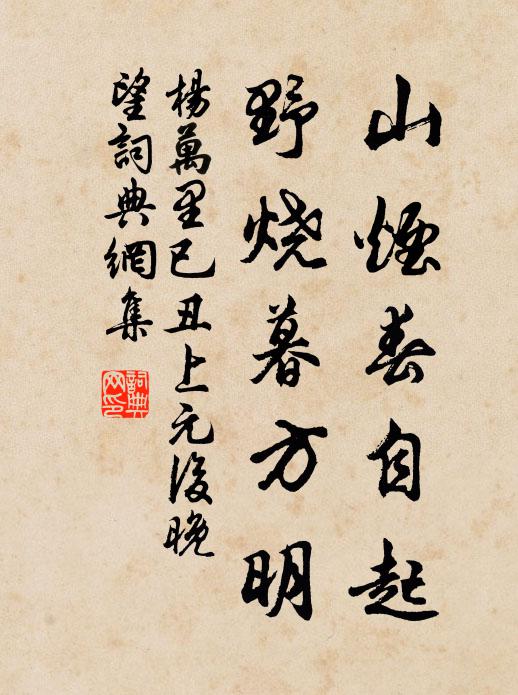 山煙春自起
野烧暮方明
楊萬里已丑上元後晚
望詞典網集
詞典
网印